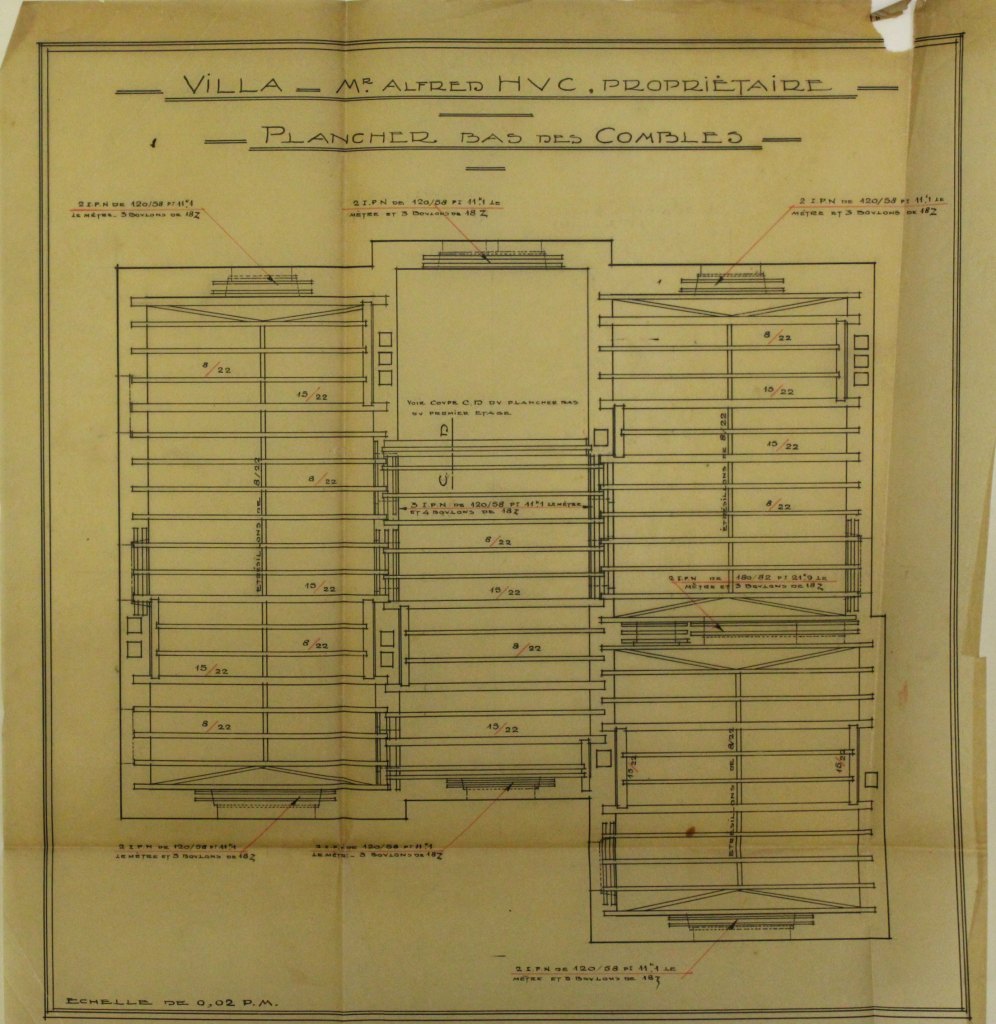 VILLA - MR ALFRED HVC, PROPRIÉTAIRE
PLANCHER BAS DES COMBLES
2 I.P.N DE 120/58 PT 11K1
LE MÈTRE - 3 BOVLONS DE 18
2 I.P.N DE 120/58 PT 11K1 LE
MÈTRE ET 3 BOVLONS DE 18
2 I.P.N DE 120/58 PT 11K1 LE
MÈTRE ET 3 BOVLONS DE 18
8/22
15/22
8/22
15/22
VOIR COVPE C.D DV PLANCHER BAS
DV PREMIER ÉTAGE
D
C
15/22
8/22
8/22
ÉTRÉSILLONS DE 8/22
ÉTRÉSILLONS DE 8/22
3 I.P.N DE 120/58 PT 11K1 LE MÈTRE
ET 4 BOVLONS DE 18
8/22
15/22
15/22
2 I.P.N DE 180/82 PT 21K9 LE
MÈTRE ET 3 BOVLONS DE 18
8/22
8/22
15/22
8/22
15/22
15/22
15/22
ÉTRÉSILLONS DE 8/22
2 I.P.N DE 120/58 PT 11K1
LE MÈTRE ET 3 BOVLONS DE 18
DE 120/58 PT 11K1
LE MÈTRE - 3 BOVLONS DE 18
2 I.P.N DE 120/58 PT 11K1 LE
MÈTRE ET BOVLONS DE 18
ECHELLE DE 0,02 P.M.